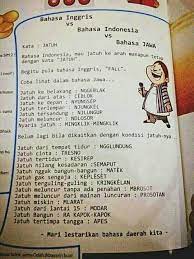 Bahasa Inggris
vs
Bahasa Indonesia
vs
Bahasa JAWA
Kata : JATUH
Bahasa Indonesia, mau jatuh ke arah manapun tetep
dengan kata "JATUH".
Begitu pula bahasa Inggris, "FALL".
Coba lihat dalam bahasa Jawa...
Jatuh ke belakang : NGGEBLAK
Jatuh dari atas : CEBLOK
Jatuh ke depan : NYUNGSEP
Jatuh terlempar : NJUNGKEL
Jatuh terpeleset : KEPLESET
Jatuh meluncur : NDLOSOR
Jatuh : KINGKLIK-MINGKLIK
Belum lagi Bila dikaitkan dengan kondisi jatuh-nya
Jatuh dari tempat tidur : NGGLUNDUNG
Jatuh cinta : TRESNO
Jatuh tertidur : KESIREP
Jatuh hilang kesadaran : SEMAPUT
Jatuh nggak bangun-bangun : MATEK
Jatuh sengaja : KEPLESET
Jatuh terguling-guling : KRINGKELAN
Jatuh meluncur tanpa ada penahan : MBROSOT
Jatuh meluncur dari main luncuran : PROSOTAN
Jatuh miskin : MLARAT
Jatuh dari lantai 15 : MODAR
Jatuh Bangun : RA KAPOK-KAPOK
Jatuh tertimpa tangga : APES
- Mari lestarikan bahasa daerah kita -